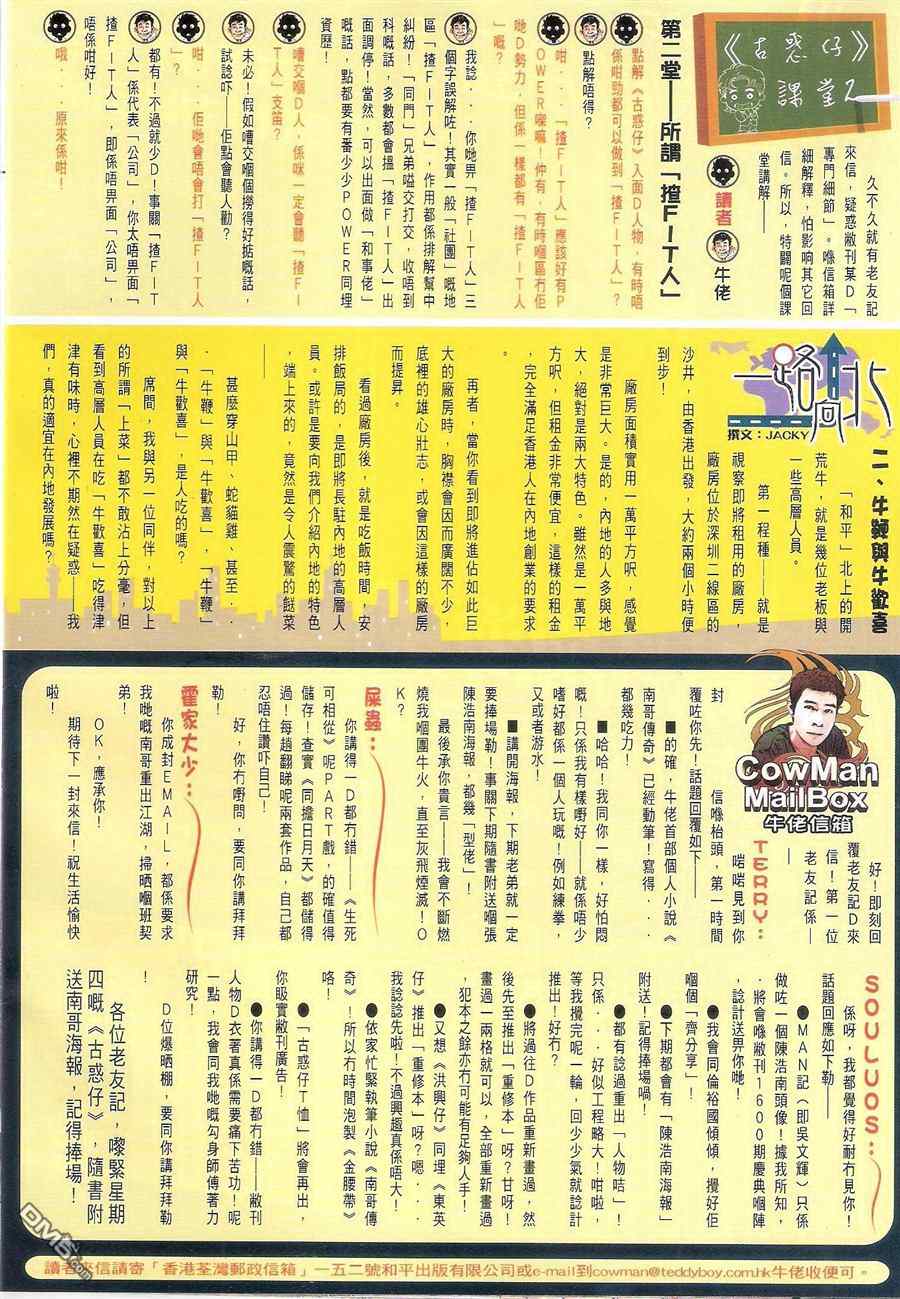 《古惑仔》
課堂2
久不久就有老友記
來信，疑惑敝刊某D「
專門細節」。喺信箱詳
細解釋，怕影响其它回
信。所以，特闢呢個課
堂講解——
讀者
牛佬
第二堂——所謂「揸FIT人」
點解《古惑仔》入面D人物，有時唔
係咁勁都可以做到「揸FIT人」？
點解唔得？
咁...「揸FIT人」應該好有P
OWER㗎嘛！仲有，有時嗰區冇佢
哋D勢力，但係一樣都有「揸FIT人
」嘅？
我諗...你哋畀「揸FIT人」三
個字誤解咗！其實一般「社團」嘅地
區「揸FIT人」，作用都係排解幫中
糾紛！「同門」兄弟嗌交打交，收唔到
科嘅話，多數都會搵「揸FIT人」出
面調停！當然，可以出面做「和事佬」
嘅話，點都要有番少少POWER同埋
資歷！
嘈交嗰D人，係咪一定會聽「揸FI
T人」支笛？
未必！假如嘈交嗰個撈得好掂嘅話，
試諗吓——佢點會聽人勸？
咁...佢哋會唔會打「揸FIT人
」？
都有！不過就少D！事關「揸FIT
人」係代表「公司」，你太唔畀面「
揸FIT人」，即係唔畀面「公司」，
唔係咁好！
哦...原來係咁！
一路向北
撰文：JACKY
二、牛鞭與牛歡喜
「和平」北上的開
荒牛，就是幾位老板與
一些高層人員。
第一程種——就是
視察即將租用的廠房，
廠房位於深圳二線區的
沙井，由香港出發，大約兩個小時便
到步！
廠房面積實用一萬平方呎，感覺
是非常巨大。是的，內地的人多與地
大，絕對是兩大特色。雖然是一萬平
方呎，但租金非常便宜，這樣的租金
，完全滿足香港人在內地創業的要求
。
再者，當你看到即將進佔如此巨
大的廠房時，胸襟會因而廣闊不少，
底裡的雄心壯志，或會因這樣的廠房
而提昇。
看過廠房後，就是吃飯時間，安
排飯局的，是即將長駐內地的高層人
員。或許是要向我們介紹內地的特色
，端上來的，竟然是令人震驚的餸菜
——
甚麼穿山甲、蛇貓雞、甚至..
.「牛鞭」與「牛歡喜」，「牛鞭」
與「牛歡喜」，是人吃的嗎？
席間，我與另一位同伴，對以上
的所謂「上菜」都不敢沾上分毫，但
看到高層人員在吃「牛歡喜」吃得津
津有味時，心裡不期然在疑惑——我
們，真的適宜在內地發展嗎？
CowMan
MailBox
牛佬信箱
好！即刻回
覆老友記D來
信！第一位
老友記係—
—
TERRY：
啱啱見到你
信喺枱頭，第一時間
覆咗你先！話題回覆如下——
封
■的確，牛佬首部個人小說《
南哥傳奇》已經動筆！寫得...
都幾吃力！
■哈哈！我同你一樣，好怕悶
嘅！只係我有樣嘢好——就係唔少
嗜好都係一個人玩嘅！例如練拳，
又或者游水！
■講開海報，下期老弟就一定
要捧場勒！事關下期隨書附送嗰張
陳浩南海報，都幾「型佬」！
最後承你貴言——我會不斷燃
燒我嗰團牛火，直至灰飛煙滅！O
K？
屎蟲：
你講得一D都冇錯——《生死
可相從》呢PART戲，的確值得
儲存！查實《同擔日月天》都儲得
過！每趟翻睇呢兩套作品，自己都
忍唔住讚吓自己！
好，你冇嘢問，要同你講拜拜
勒！
霍家大少：
你成封EMAIL，都係要求
我哋嘅南哥重出江湖，掃晒嗰班契
弟！
OK，應承你！
期待下一封來信！祝生活愉快
啦！
SOULUOS：
係呀，我都覺得好耐冇見你！
話題回應如下勒——
●MAN記（即吳文輝）只係
做咗一個陳浩南頭像！據我所知，
將會喺敝刊1600期慶典嗰陣
，諗計送畀你哋！
●我會同倫裕國傾傾，攪好佢
嗰個「齊分享」！
●下期都會有「陳浩南海報」
附送！記得捧場喎！
●都有諗過重出「人物咭」！
只係...好似工程略大！咁啦，
等我攪完呢一輪，回少少氣就諗計
推出！好冇？
●將過往D作品重新畫過，然
後先至推出「重修本」呀？甘呀！
畫過一兩格就可以，全部重新畫過
，犯本之餘亦冇可能有足夠人手！
●又想《洪興仔》同埋《東英
仔》推出「重修本」呀？嗯...
我諗諗先啦！不過興趣真係唔大！
●依家忙緊執筆小說《南哥傳
奇》！所以冇時間泡製《金腰帶》
咯！
●「古惑仔T恤」將會再出，
你眼實敝刊廣告！
●你講得一D都冇錯——敝刊
人物D衣著真係需要痛下苦功！呢
一點，我會同我哋嘅勾身師傅著力
研究！
D位爆晒棚，要同你講拜拜勒
！
各位老友記，嚟緊星期
四嘅《古惑仔》，隨書附
送南哥海報，記得捧場！
讀者來信請寄「香港荃灣郵政信箱」一五二號和平出版有限公司或e-mail到cowman@teddyboy.com.hk牛佬收便可。
DM5.com